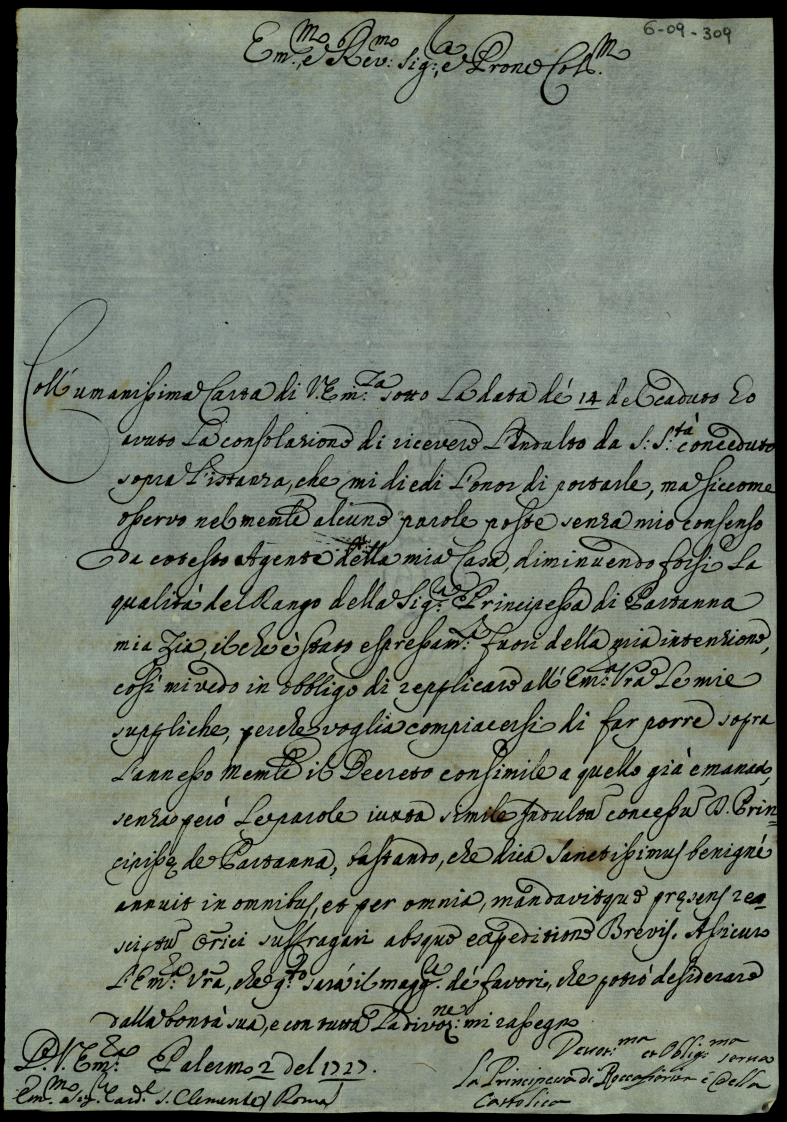 6-09-309
Em.mo e Rev.mo Sig.r, e Prone Col.mo
Coll'umanissima Carta di V. Em.za sotto La data de' 14 del caduto ho
avuto La consolazione di ricevere L'Indulto da S: S.tà conceduto
sopra L'istanza, che mi diedi L'onor di portarle, ma siccome
osservo nel memle alcune parole poste senza mio consenso
da cotesto Agente della mia Casa, diminuendo forsi La
qualità del Rango della Sig.ra Principessa di Partanna
mia Zia, il che è stato espressam.te fuori della mia intenzione,
così mi vedo in obbligo di repplicare all'Em.a Vra Le mie
suppliche, perche voglia compiacersi di far porre sopra
L'annesso Memle il Decreto consimile a quello già emanato,
senza però Le parole iuxta simile Indultu concessu D. Prin=
cipissę de Partanna, bastando, che dica Sanctissimus benignè
annuit in omnibus, et per omnia, mandavitque pręsens re=
scriptu Orici suffragari absque expeditione Brevis. Assicuro
L'Em.a Vra, che q.to sarà il magg.re de' favori, che potrò desiderare
dalla bontà sua, e con tutta La divoz.ne mi rassegno
D. V. Em.za Palermo 2 del 1727.
Devot.ma et Obblig.ma serva
La Principessa di Roccafiorita è Della
Cattolica
Em.mo Sig.r Card.l S. Clemente / Roma /